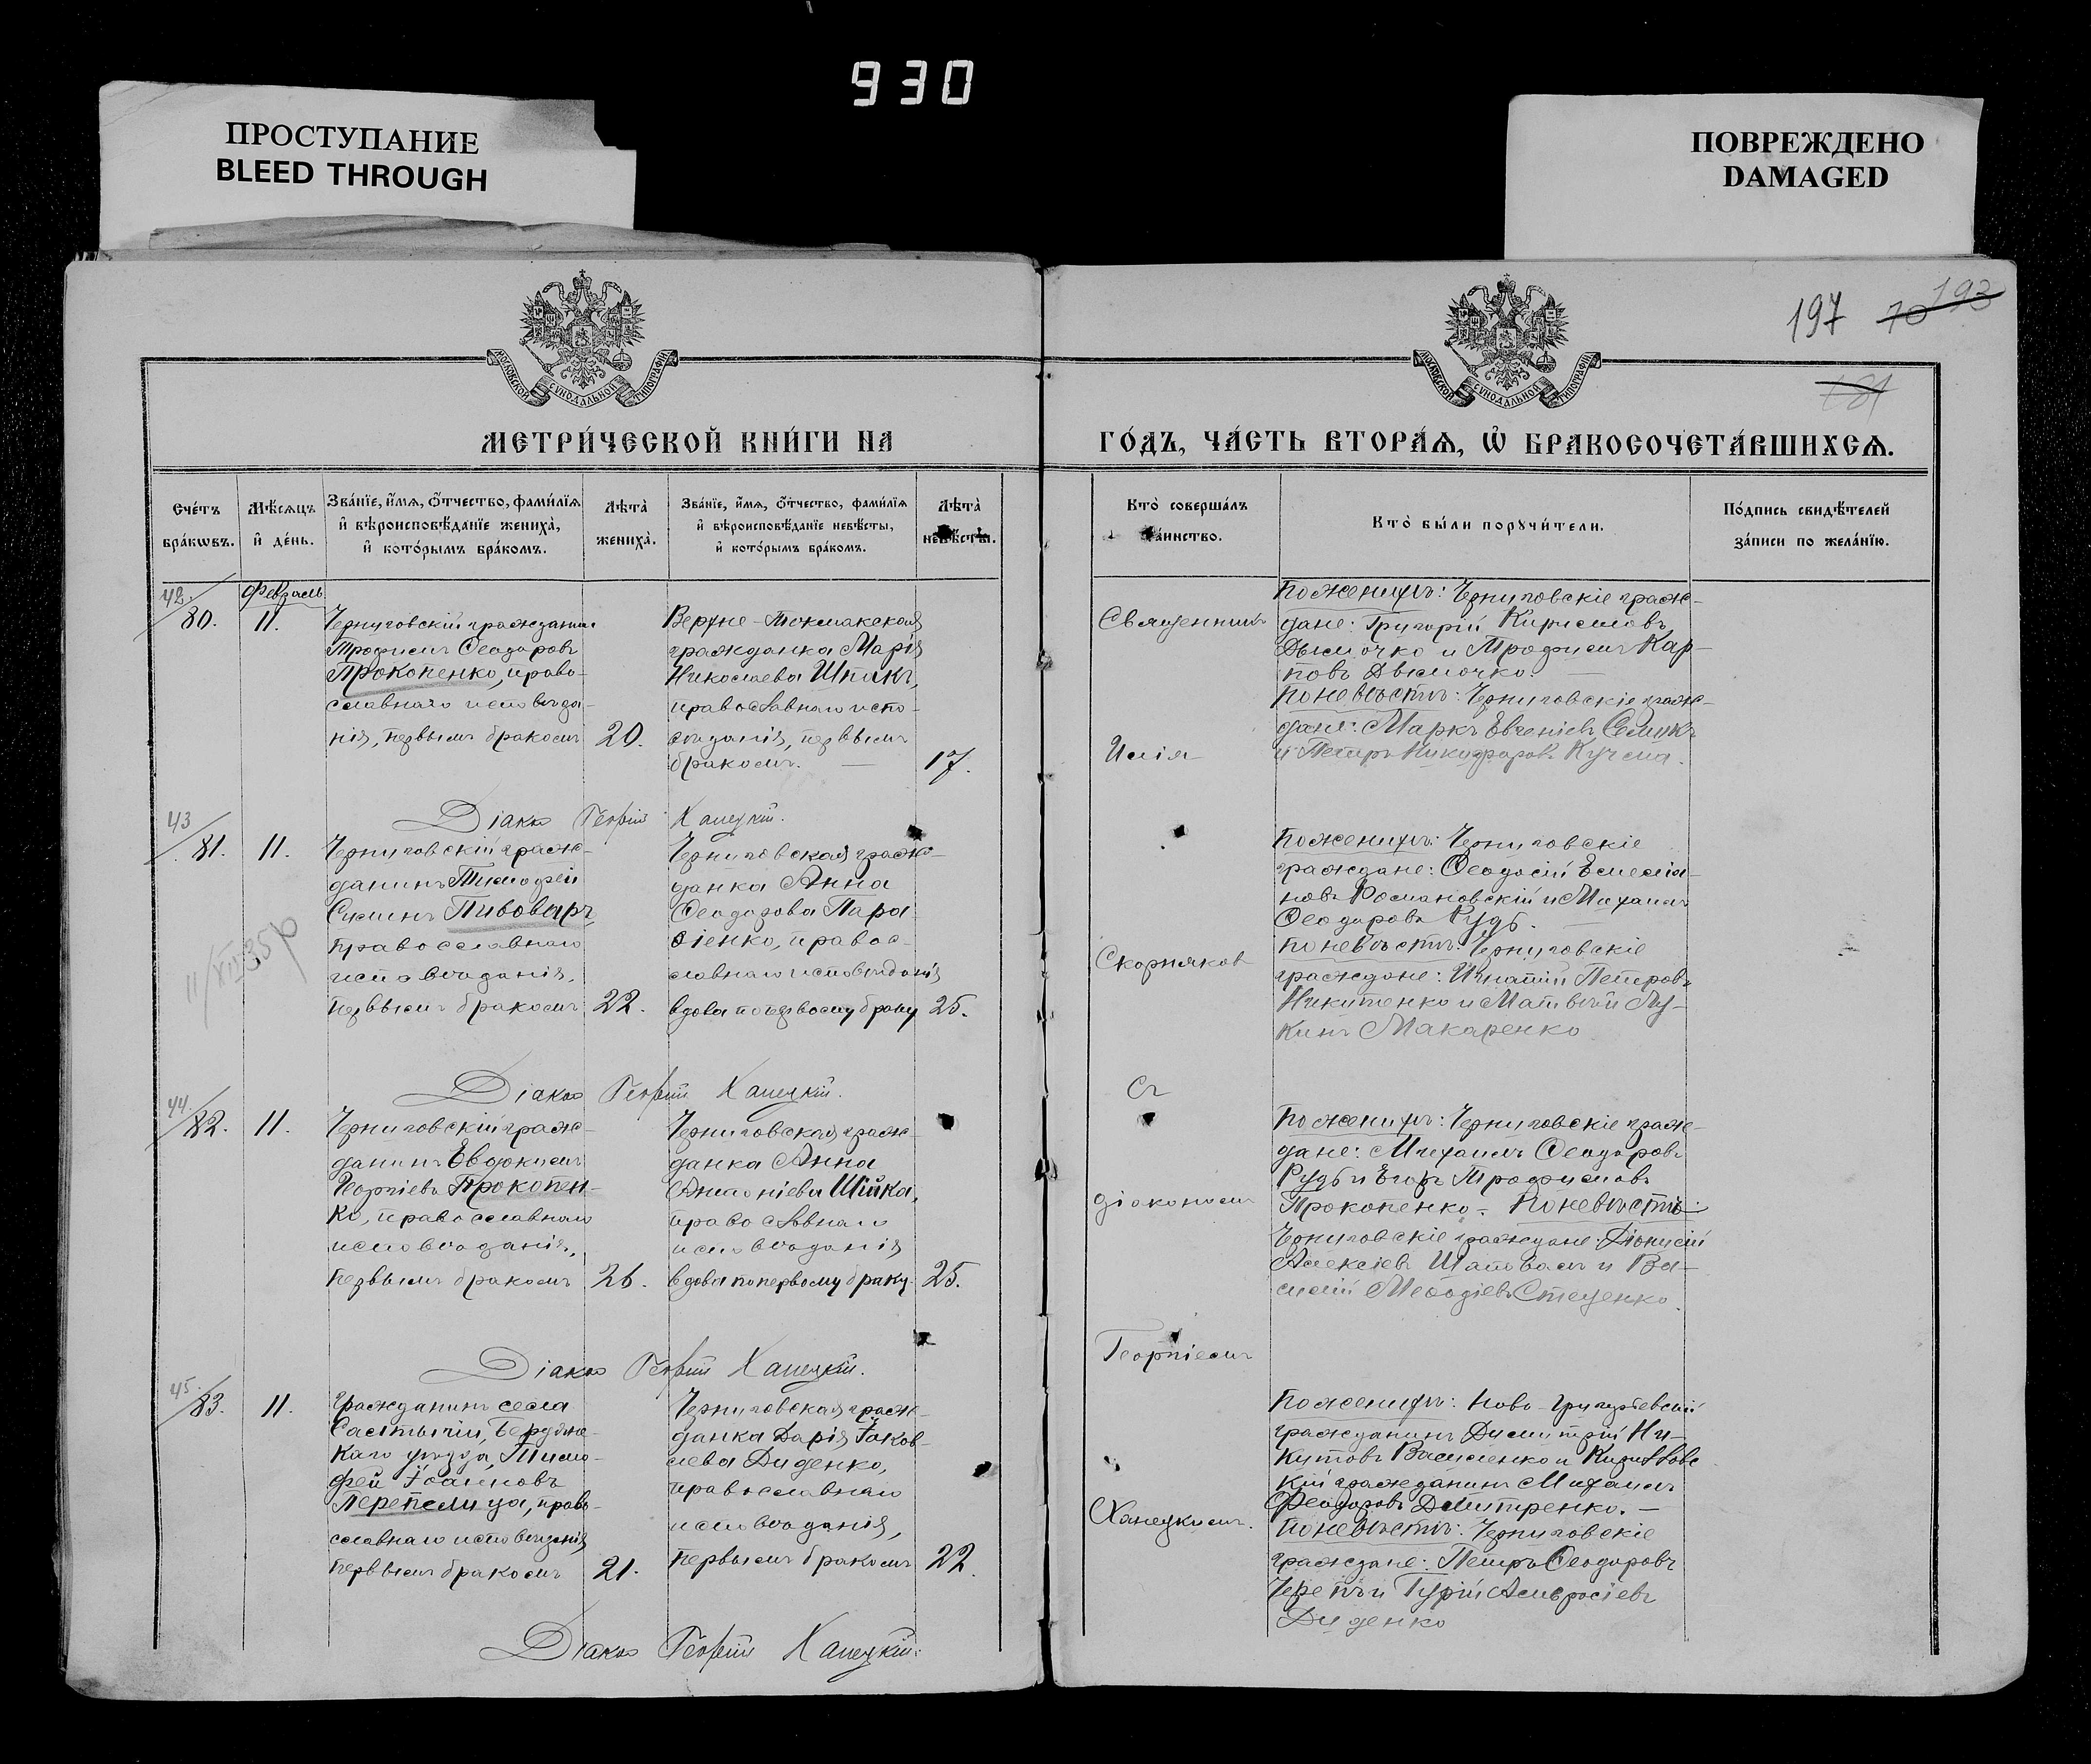 930
ПРОСТУПАНИЕ
BLEED THROUGH
ПОВРЕЖДЕНО
DAMAGED
197 70 193
181
МОСКОВСКОЙ СУНОДАЛЬНОЙ ТИПОГРАФІИ
МОСКОВСКОЙ СУНОДАЛЬНОЙ ТИПОГРАФІИ
МЕТРИ́ЧЕСКОЙ КНИ́ГИ НА
ГО́ДЪ, ЧА́СТЬ ВТОРА́Ѧ, Ѡ҆ БРАКОСОЧЕТА́ВШИХСѦ.
Сче́тъ бра́кѡвъ.
Мѣ́сѧцъ и҆ де́нь.
Зва́нїе, и҆́мѧ, ѻ҆́тчество, фами́лїѧ
и҆ вѣроисповѣ́данїе жениха̀,
и҆ кото́рымъ бра́комъ.
Лѣ́та̀ жениха̀.
Зва́нїе, и҆́мѧ, ѻ҆́тчество, фами́лїѧ
и҆ вѣроисповѣ́данїе невѣ́сты,
и҆ кото́рымъ бра́комъ.
Лѣ́та̀ невѣ́сты.
Кто̀ соверша́лъ
та́инство.
Кто̀ бы́ли порꙋчи́тели.
По́дпись свидѣ́телей
за́писи по жела́нїю.
42.
80.
Февраль
11.
Черниговскій гражданинъ
Трофимъ Ѳеодоровъ
Прокопенко, право-
славнаго исповѣда-
нія, первымъ бракомъ
20.
Верхне-Токмакская
гражданка Марія
Николаева Шпакъ,
православнаго испо-
вѣданія, первымъ
бракомъ. —
17.
Священникъ
Илія
По женихѣ: Черниговскіе граж-
дане: Григорій Кирилловъ
Дымочко и Трофимъ Кар-
повъ Дымочко. —
По невѣстѣ: Черниговскіе граж-
дане: Маркъ Евгеніевъ Семикъ
и Петръ Никифоровъ Кучма.
Діаконъ Георгій Ханецкій.
43
81.
11.
Черниговскій граж-
данинъ Тимофей
Симинъ Пивоваръ
православнаго
исповѣданія,
первымъ бракомъ
22.
Черниговская граж-
данка Анна
Ѳеодорова
православ-
славнаго исповѣданія
вдова по первому браку
25.
11/XII 35 р
Скорняковъ
По женихѣ: Черниговскіе
граждане: Ѳеодосій Емелія-
новъ Романовскій и Михаилъ
Ѳеодоровъ Рудь. —
По невѣстѣ: Черниговскіе
граждане: Игнатій Петровъ
Никитенко и Матвѣй Лу-
кинъ Макаренко
Діаконъ Георгій Ханецкій.
Съ
44.
82.
11.
Черниговскій граж-
данинъ Евдокимъ
Георгіевъ Прокопен-
ко, православнаго
исповѣданія,
первымъ бракомъ
26.
Черниговская граж-
данка Анна
Антоніева Шійка,
православнаго
исповѣданія
вдова по первому браку.
25.
діакономъ
По женихѣ: Черниговскіе граж-
дане: Михаилъ Ѳеодоровъ
Рудь и Егоръ Трофимовъ
Прокопенко. — По невѣстѣ:
Черниговскіе граждане: Діонисій
Алексіевъ Шаповалъ и Ва-
силій Меѳодіевъ Стеценко.
Діаконъ Георгій Ханецкій.
Георгіемъ
45.
83.
11.
Гражданинъ села
Бердян-
скаго уѣзда, Тимо-
фей Іоанновъ
Перепелица, право-
славнаго исповѣданія
первымъ бракомъ
21.
Черниговская граж-
данка Дарія Іаков-
лева Диденко,
православнаго
исповѣданія,
первымъ бракомъ
22.
Ханецкимъ.
По женихѣ: Ново-Григорьевскій
гражданинъ Димитрій Ни-
китовъ Василенко и Кирилловс
кій гражданинъ Михаилъ
Феодоровъ Дмитренко. —
По невѣстѣ: Черниговскіе
граждане: Петръ Ѳеодоровъ
Черепъ и Гурій Амвросіевъ
Диденко
Діаконъ Георгій Ханецкій.